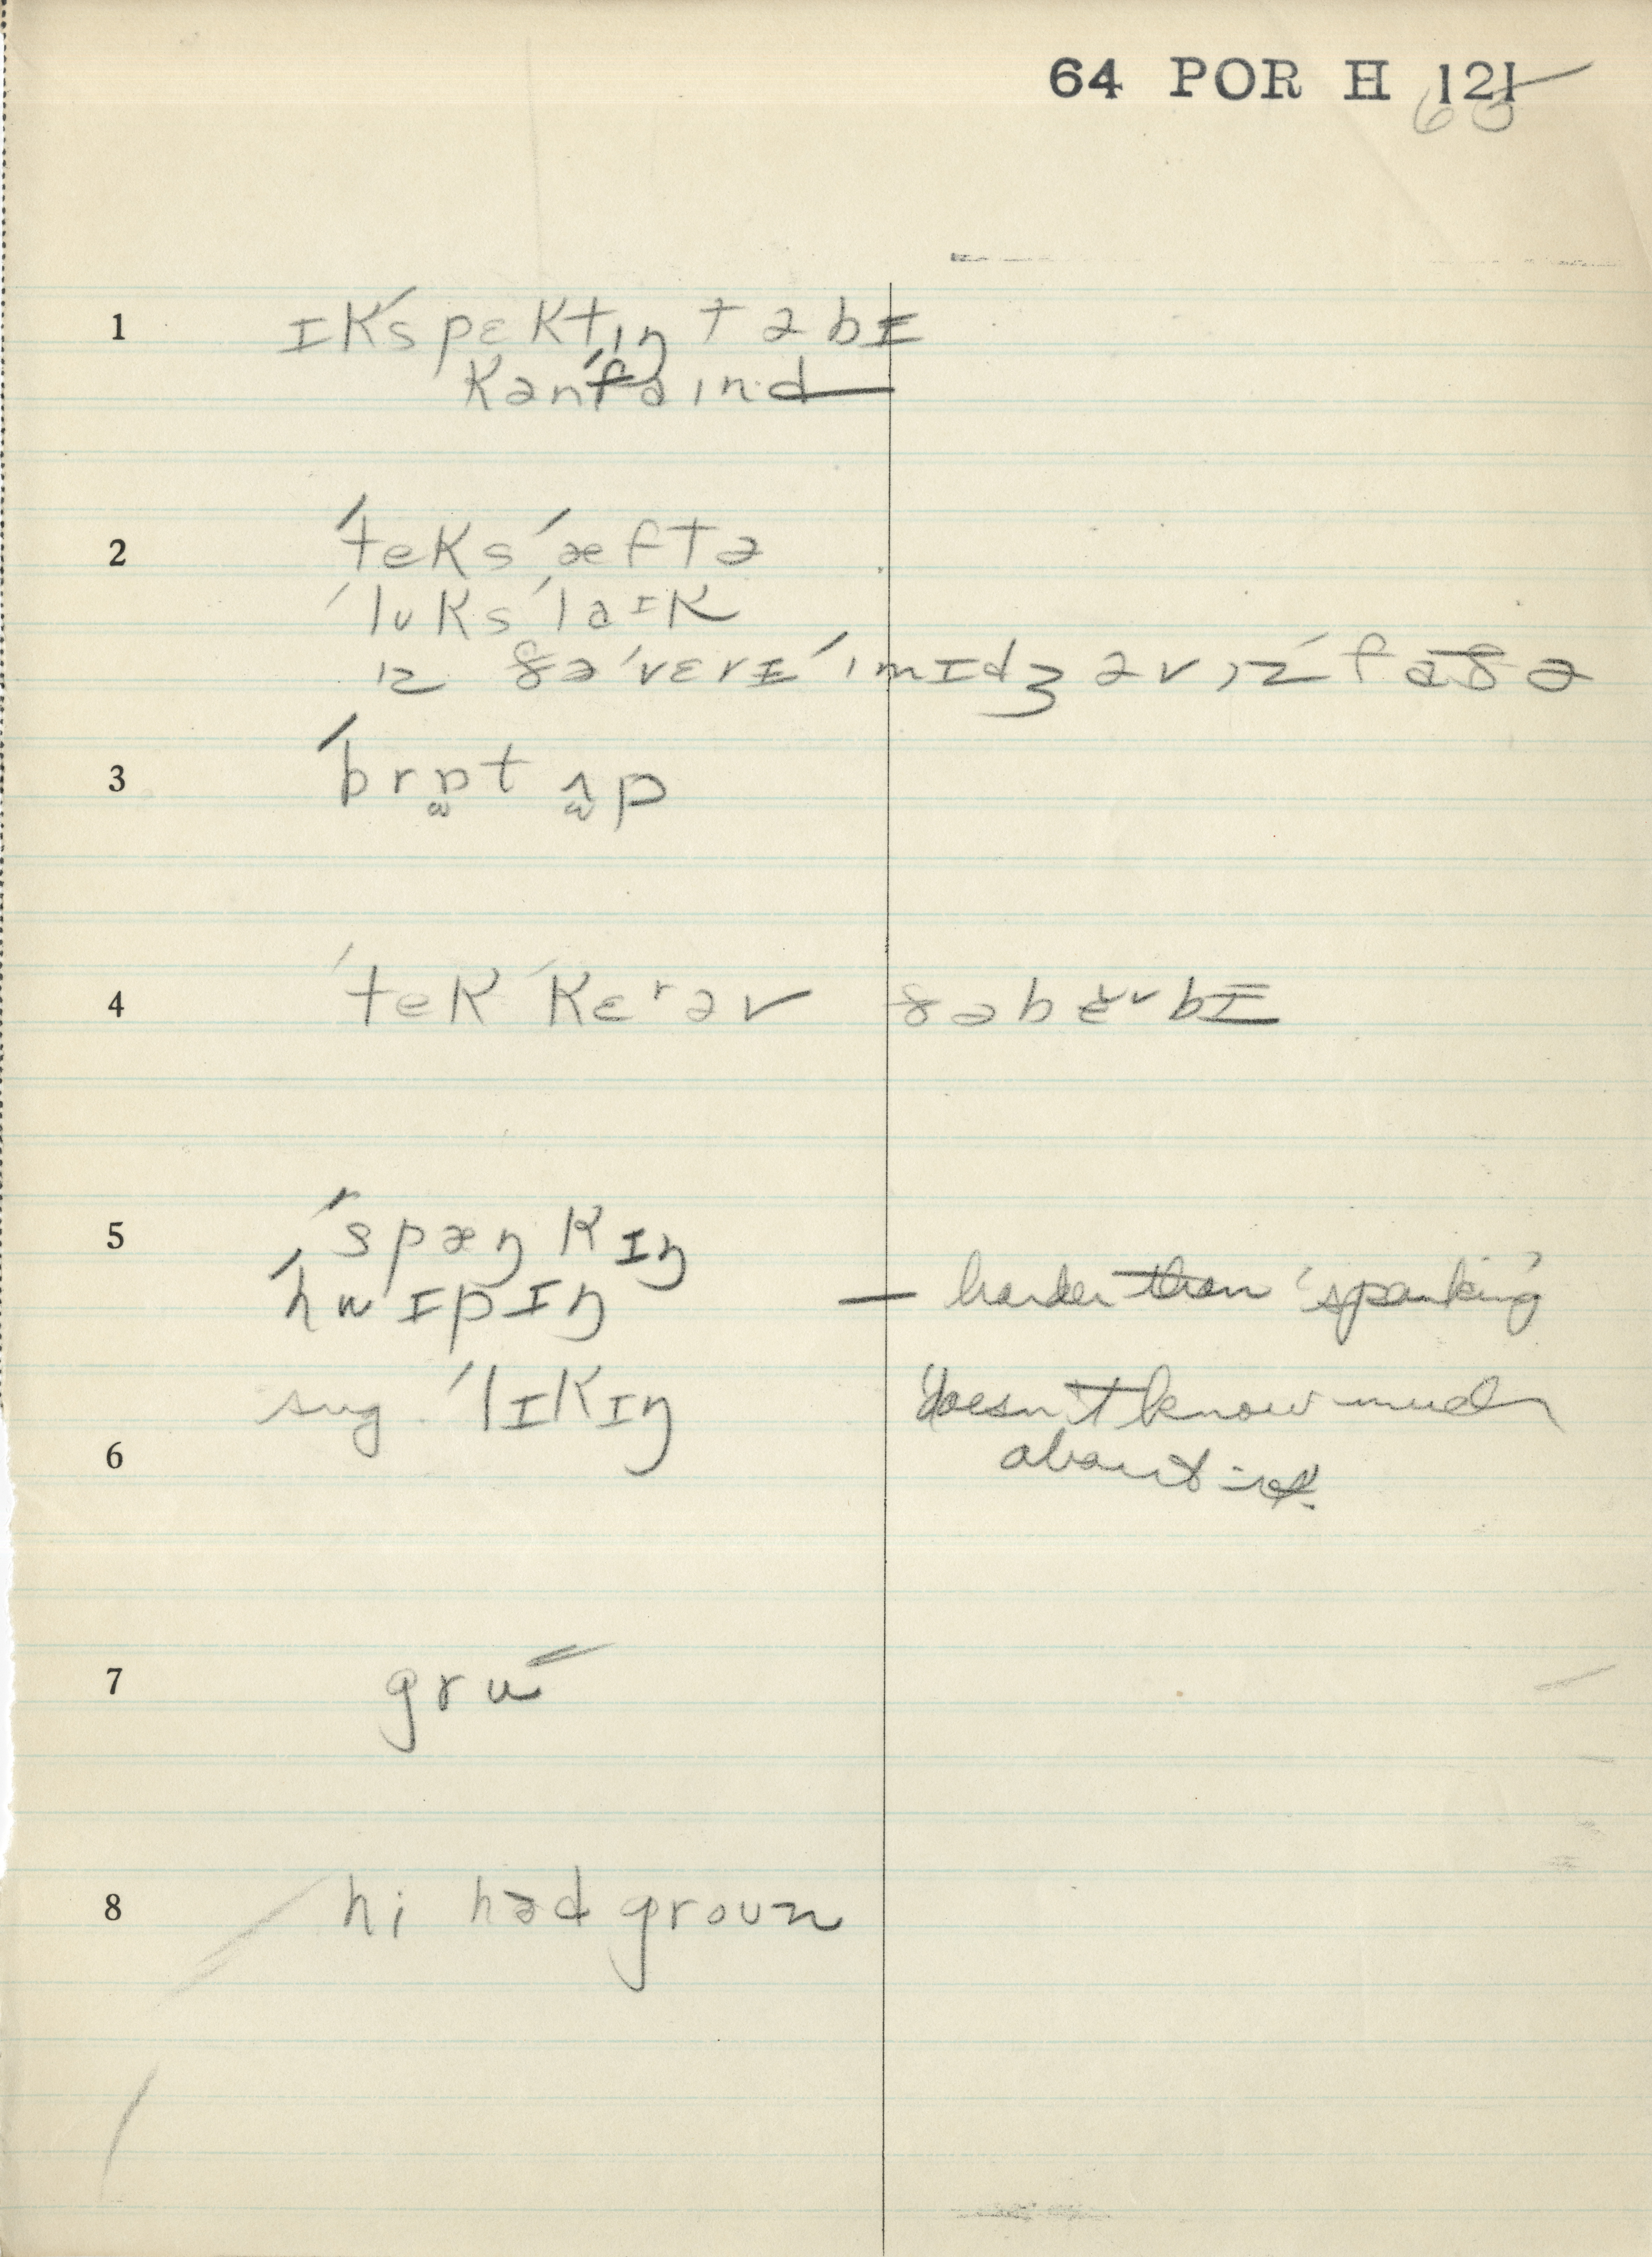 64 POR H 121
65
1 ɪkˈspɛktɪŋ tə bɪ
kənˈfaɪnd
2 ˈteks ˈæftə
ˈlʊks ˈlaɪk
ɪz ðə ˈvɛrɪ ˈɪmɪdʒ əv ɪz ˈfaðə
3 ˈbrɒt ʌp
4 ˈtek ˈkɛr əv ðə bɛrbɪ
5 ˈspæŋkɪŋ
ˈhwɪpɪŋ — harder than 'spanking'
sug. ˈlɪkɪŋ doesn't know much
6 about it.
7 gru
8 hi həd groun